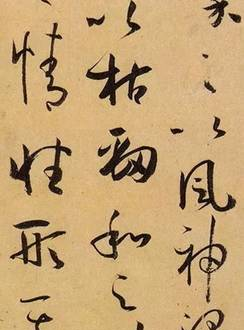 之以風神
以枯勁和之
情性形其